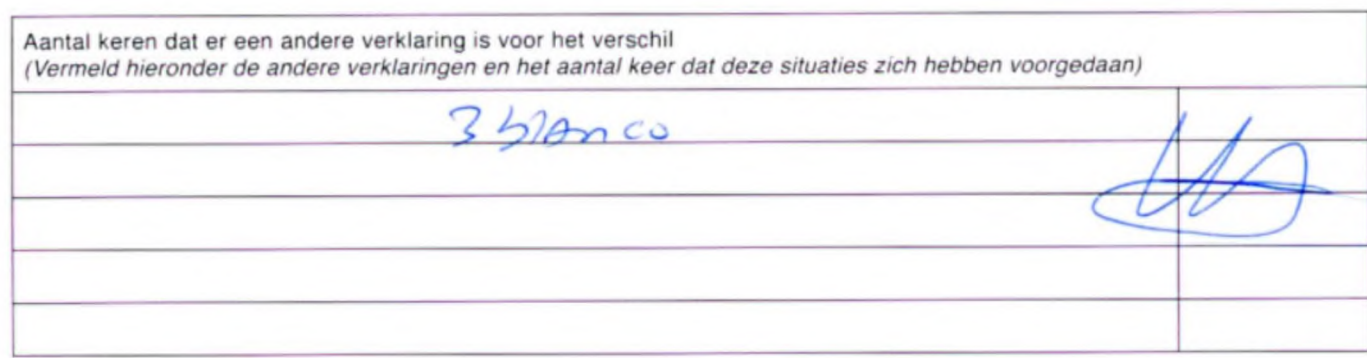 Aantal keren dat er een andere verklaring is voor het verschil
(Vermeld hieronder de andere verklaringen en het aantal keer dat deze situaties zich hebben voorgedaan)
3 blanco